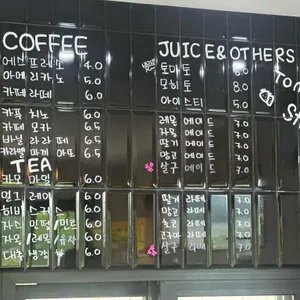 COFFEE
에스프레소 4.0
아메리카노 5.0
카페 라떼 6.0
카푸 치노 6.0
카페 모카 6.5
바닐 라라 떼 6.5
카라멜 마끼 아또 6.5
TEA
6.0
밀크
6.0
히비스커스 6.0
자스민/페퍼/민트 6.0
자몽/레몬/유자 6.0
대추 생강 6.0
JUICE & OTHERS
토마토 6.0
모히토 8.0
아이스티 5.0
레몬 에이드 7.0
자몽 에이드 7.0
딸기 에이드 7.0
망고 에이드 7.0
살구 에이드 7.0
딸기 라떼 7.0
망고 라떼 7.0
녹차 라떼 7.0
고구마 라떼 7.0
살구 라떼 7.0